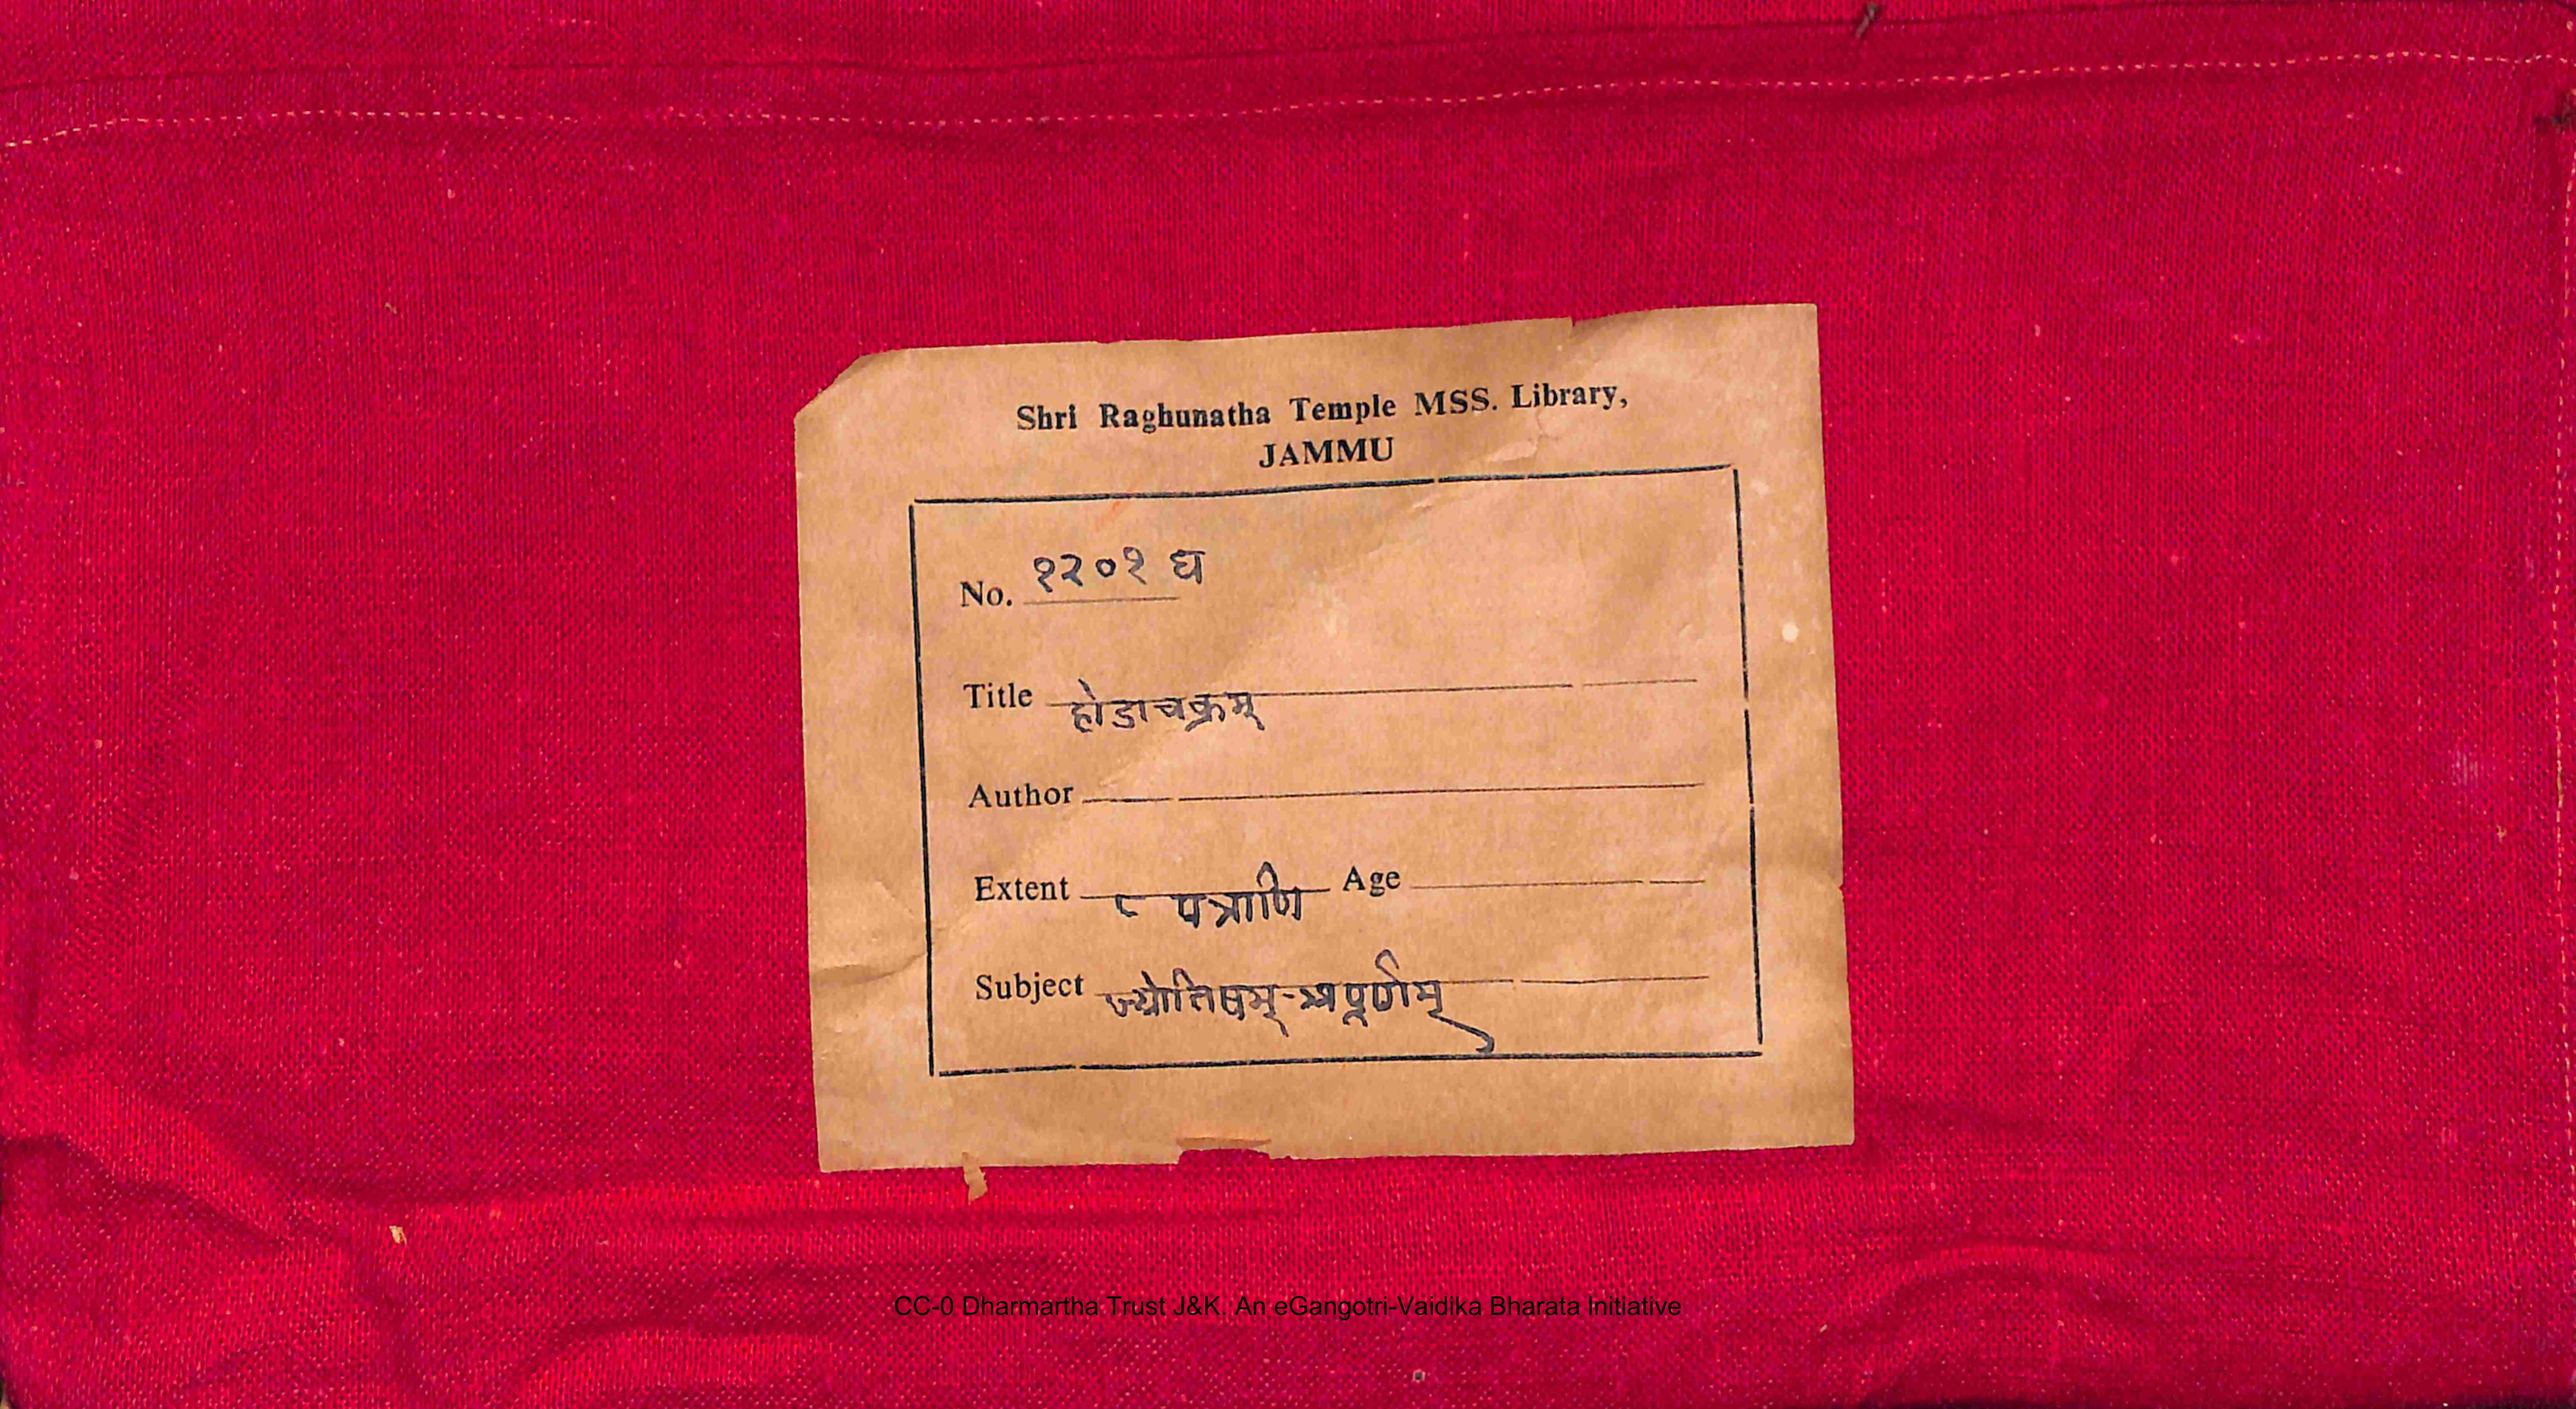 Shri Raghunatha Temple MSS. Library,
JAMMU
No. १२०१ घ
Title होडाचक्रम्
Author
Extent ८ पत्राणि Age
Subject ज्योतिषम्-अपूर्णम्
CC-0 Dharmartha Trust J&K. An eGangotri-Vaidika Bharata Initiative